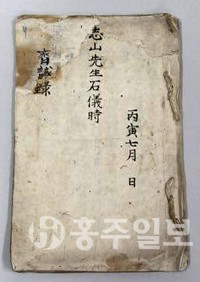 丙寅七月 日
志山先生石儀時
誠錄
홍주일보